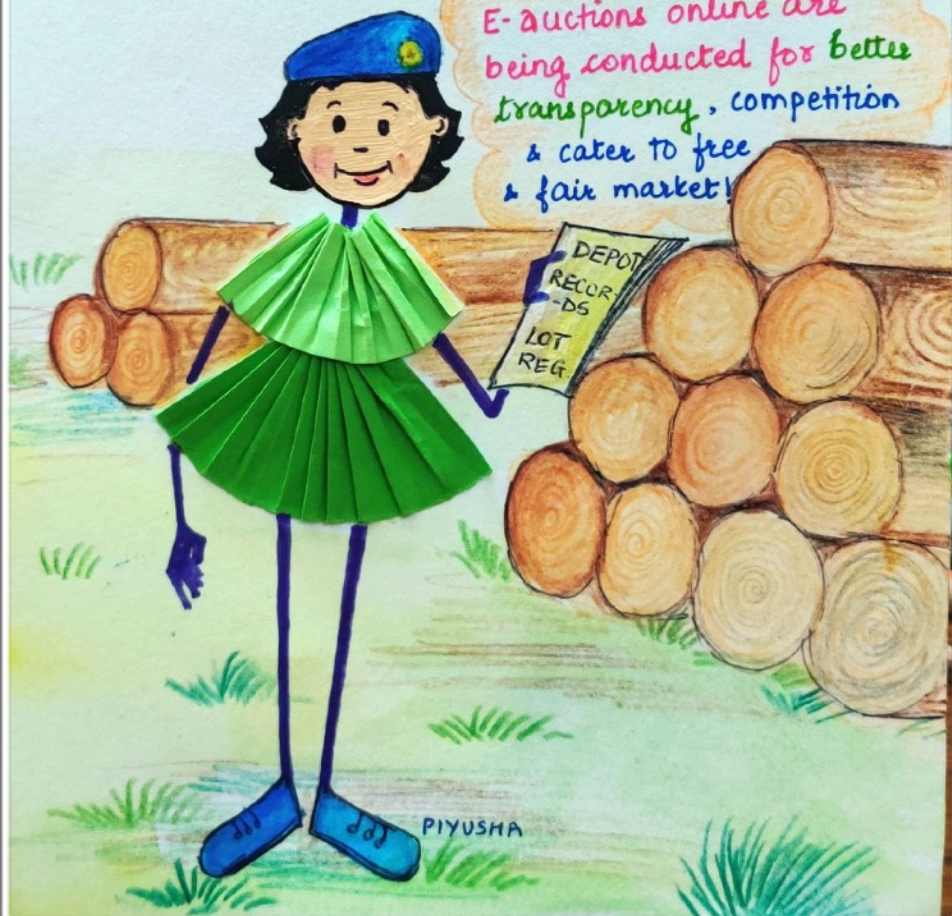 E-auctions online are
being conducted for better
transparency, competition
& cater to free
& fair market!
DEPOT
RECOR-
-DS
LOT
REG
PIYUSHA